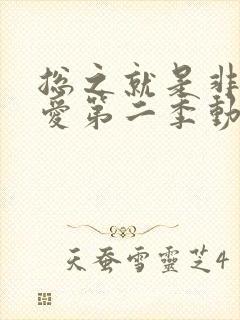 总之就是非
爱第二季動
天蚕雪靈芝4